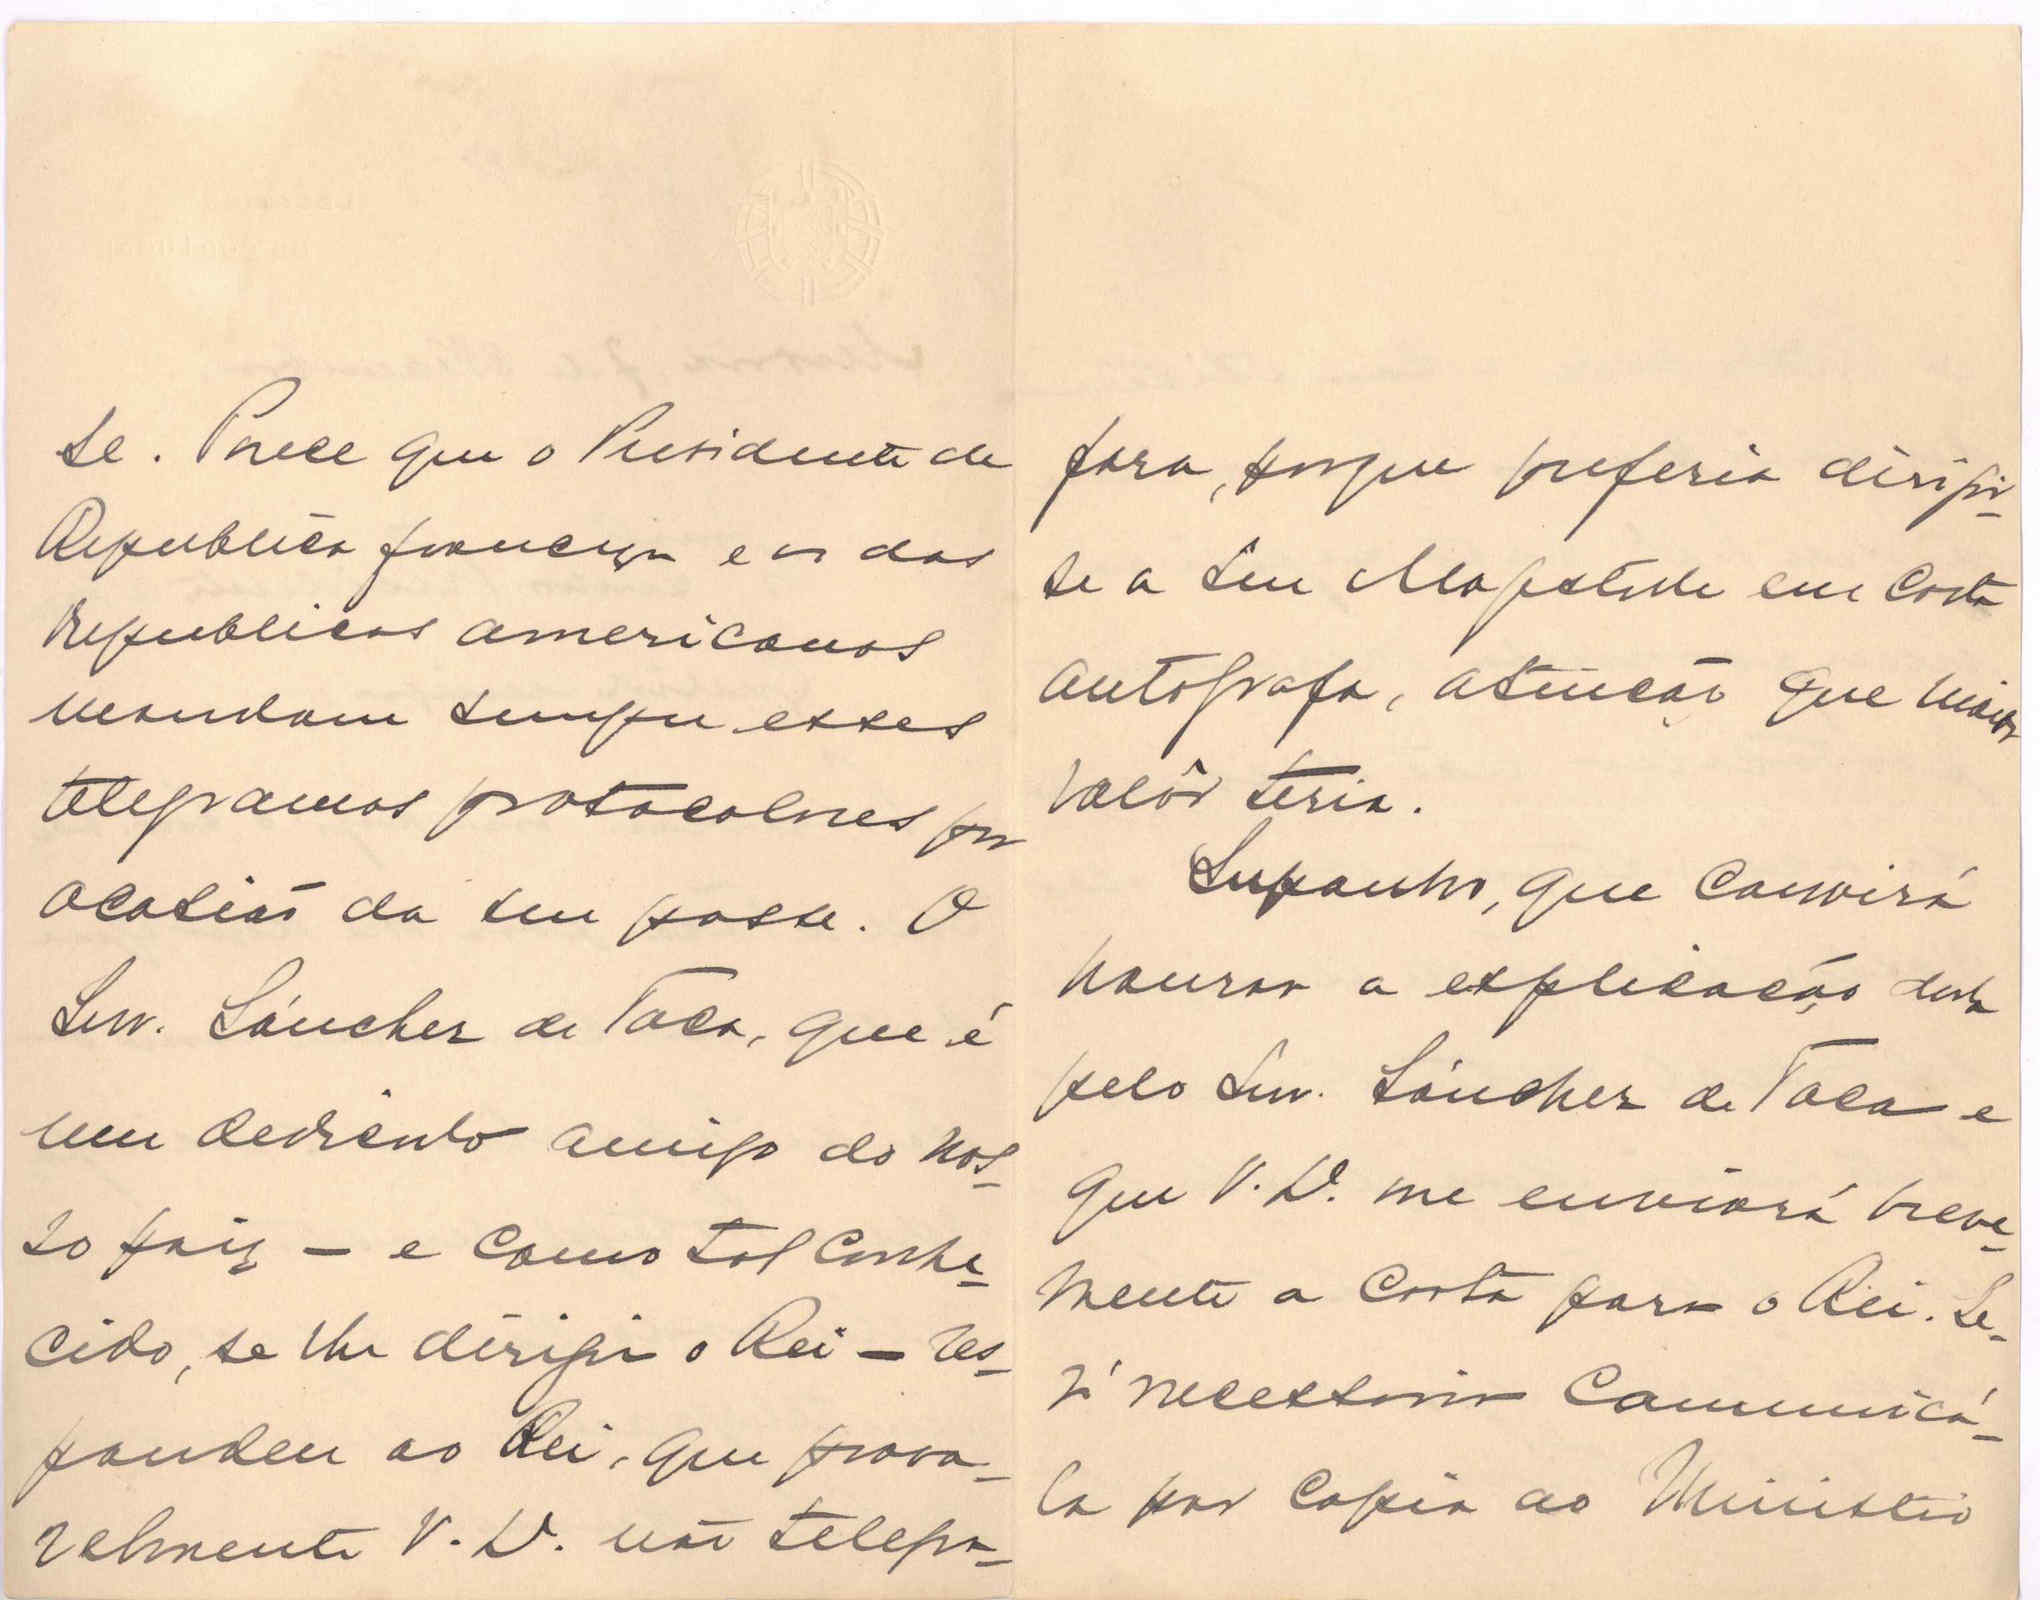 se. Parece que o Presidente da
Republica franceza e os das
Republicas americanas
mandam sempre esses
telegramas protocolares por
ocasião da sua posse. O
Snr. Sánchez de Toca, que é
um dedicado amigo do nos-
so paiz – e como tal conhe-
cido, se lhe dirigir o Rei – res-
pondeu ao Rei, que prova-
velmente V. Ex. não telegra-
fara, porque preferia dirigir-
se a Sua Magestade em carta
autógrafa, atenção que maior
valôr teria.
Suponho, que convirá
honrar a explicação dada
pelo Snr. Sánchez de Toca e
que V. Ex. me enviará breve-
mente a carta para o Rei. Se-
rá necessario communicá-
la por copia ao Ministro